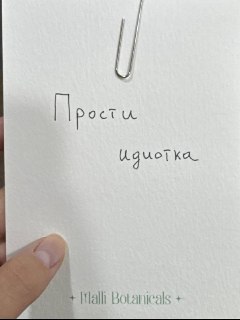 Прости
идиотка
Malli Botanicals